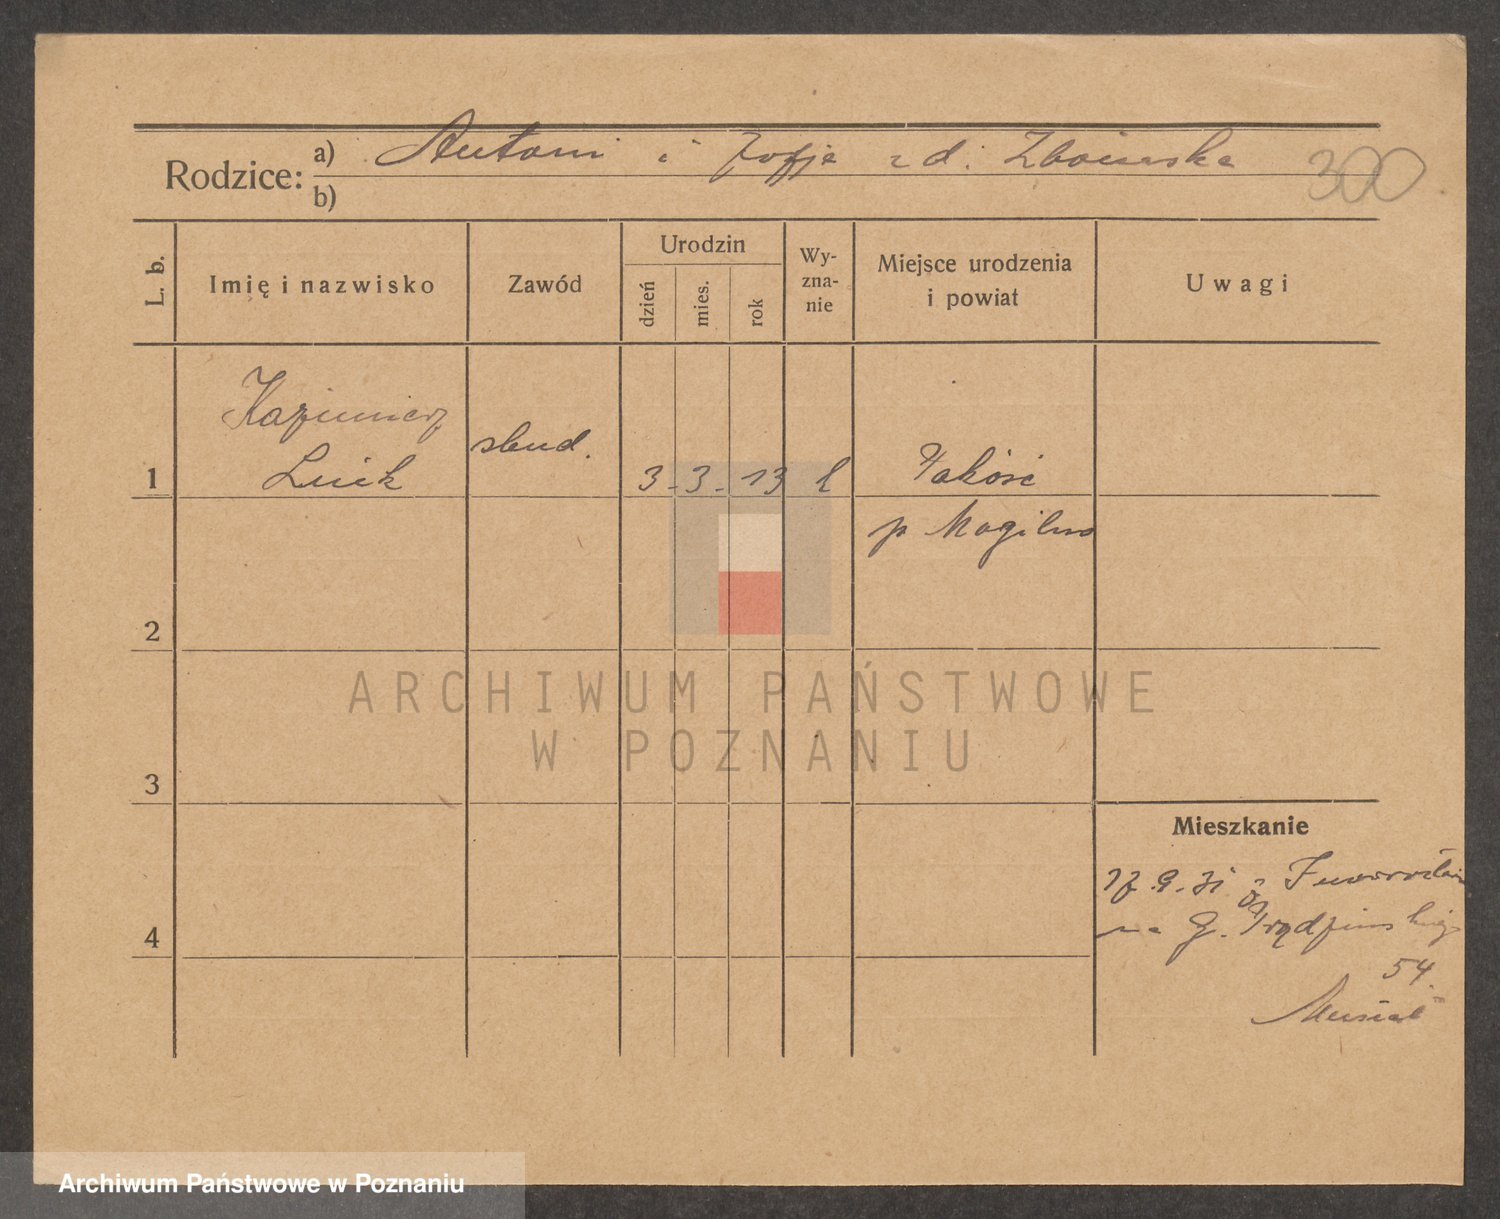 Rodzice: a) Antoni i Zofja z d.
b)
300
L. b.
Imię i nazwisko
Zawód
Urodzin
dzień
mies.
rok
Wy-
zna-
nie
Miejsce urodzenia
i powiat
Uwagi
Kazimierz
1 Luik stud. 3.-3.-13 k Pakość
p Mogilno
2
ARCHIWUM PAŃSTWOWE
W POZNANIU
3
Mieszkanie
17.9.31 z Inowrocławia
4 na G.
54.
Musiał
Archiwum Państwowe w Poznaniu